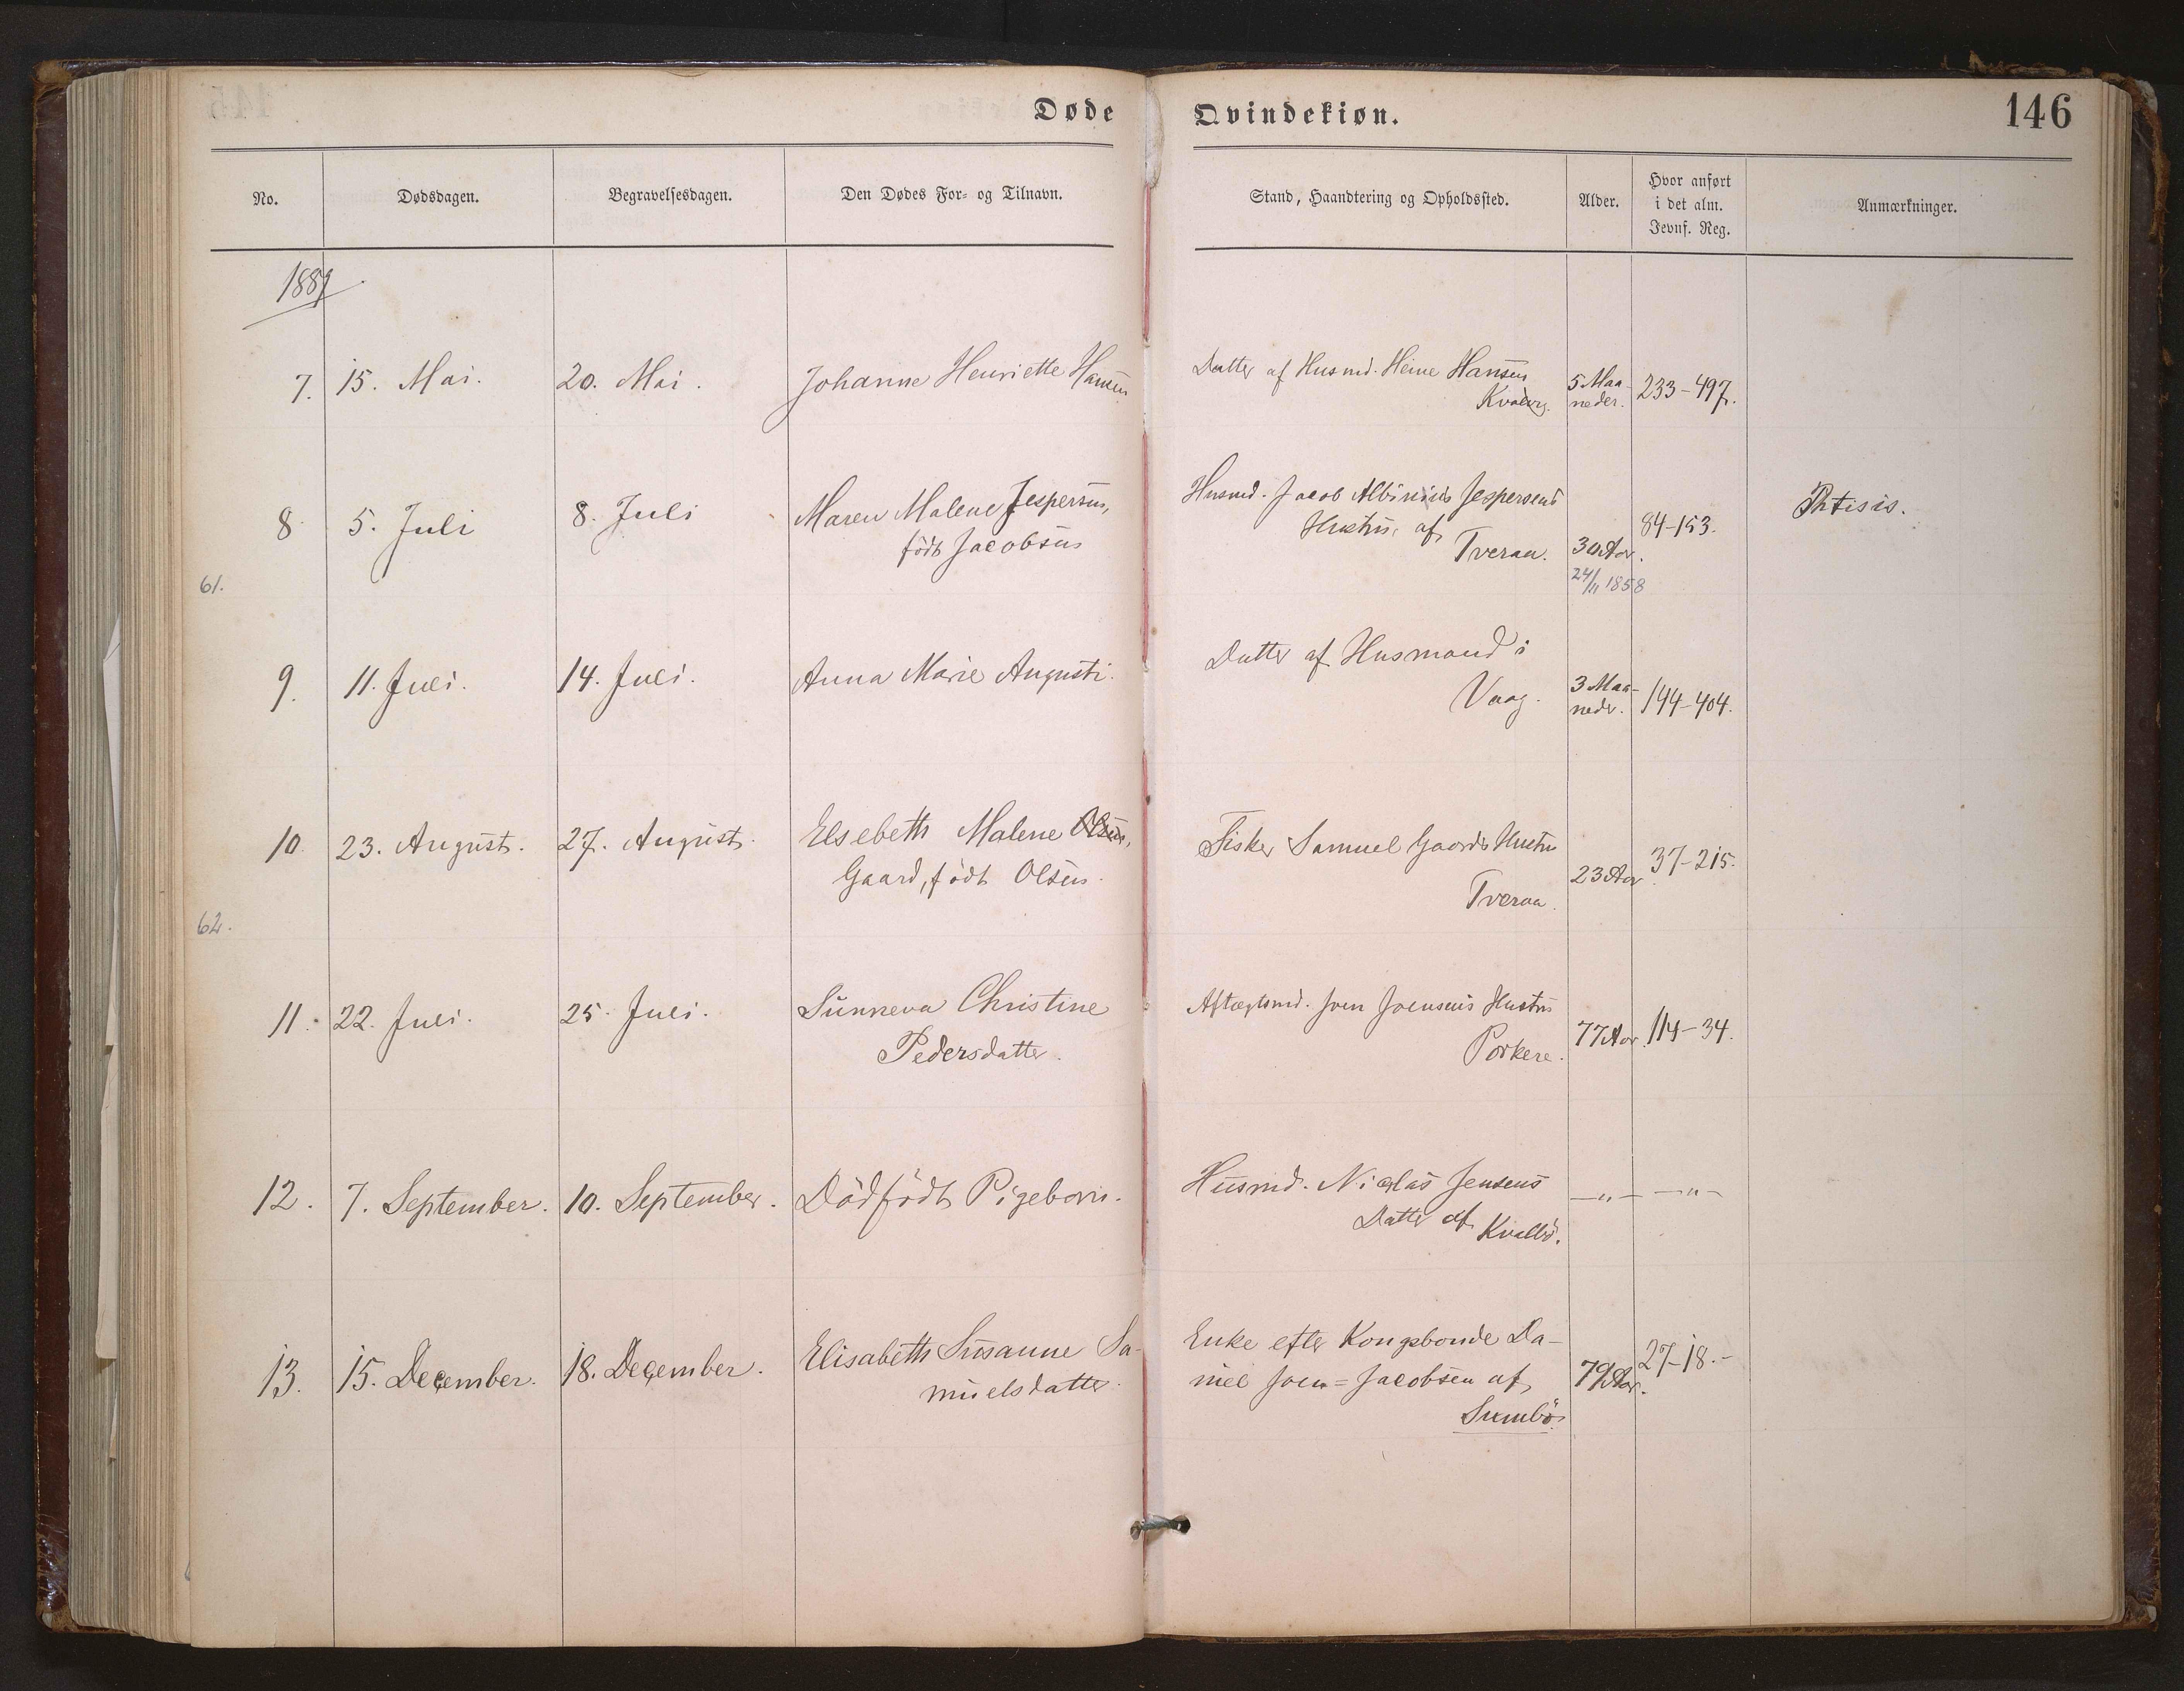 Døde Qvindekiøn. 146
No. Dødsdagen. Begravelsesdagen. Den Dødes For- og Tilnavn. Stand, Haandtering og Opholdssted. Alder. Hvor anført i det alm. Jevnf. Reg. Anmærkninger.
7. 15. Mai. 20. Mai. Johanne Henriette Hansen Datter af Husmd. Heine Hansen 5 Maa- 233-497.
neder.
8 5. Juli 8. Juli Maren Malene Jespersen, Husmd. Jacob Albinius Jespersens 84-153. Phtisis.
født Jacobsen Hustru, af Tveraa. 30 Aar.
61. 24/11 1858
9. 11. Juli. 14. Juli. Anna Marie Augusti. Datter af Husmand i
Vaag. 3 Maa- 144-404.
neder.
10. 23. August. 27. August. Elsebeth Malene Olsen, Fisker Samuel Gaards Hustru 37-215.
Gaard, født Olsen. Tveraa. 23 Aar
62.
11. 22. Juli. 25. Juli. Sunneva Christine Aftægtsmd. Joen Joensens Hustru
Pedersdatter. Porkere. 77 Aar. 114-34.
12. 7. September. 10. September. Dødfødt Pigebarn. Husmd. Niclas Jensens —„— —„—
Datter af Kvalbø.
13. 15. December. 18. December. Elisabeth Susanne Sa- Enke efter Kongsbonde Da- 27-18.-
muelsdatter. niel Joen=Jacobsen af 79 Aar.
Sumbø.